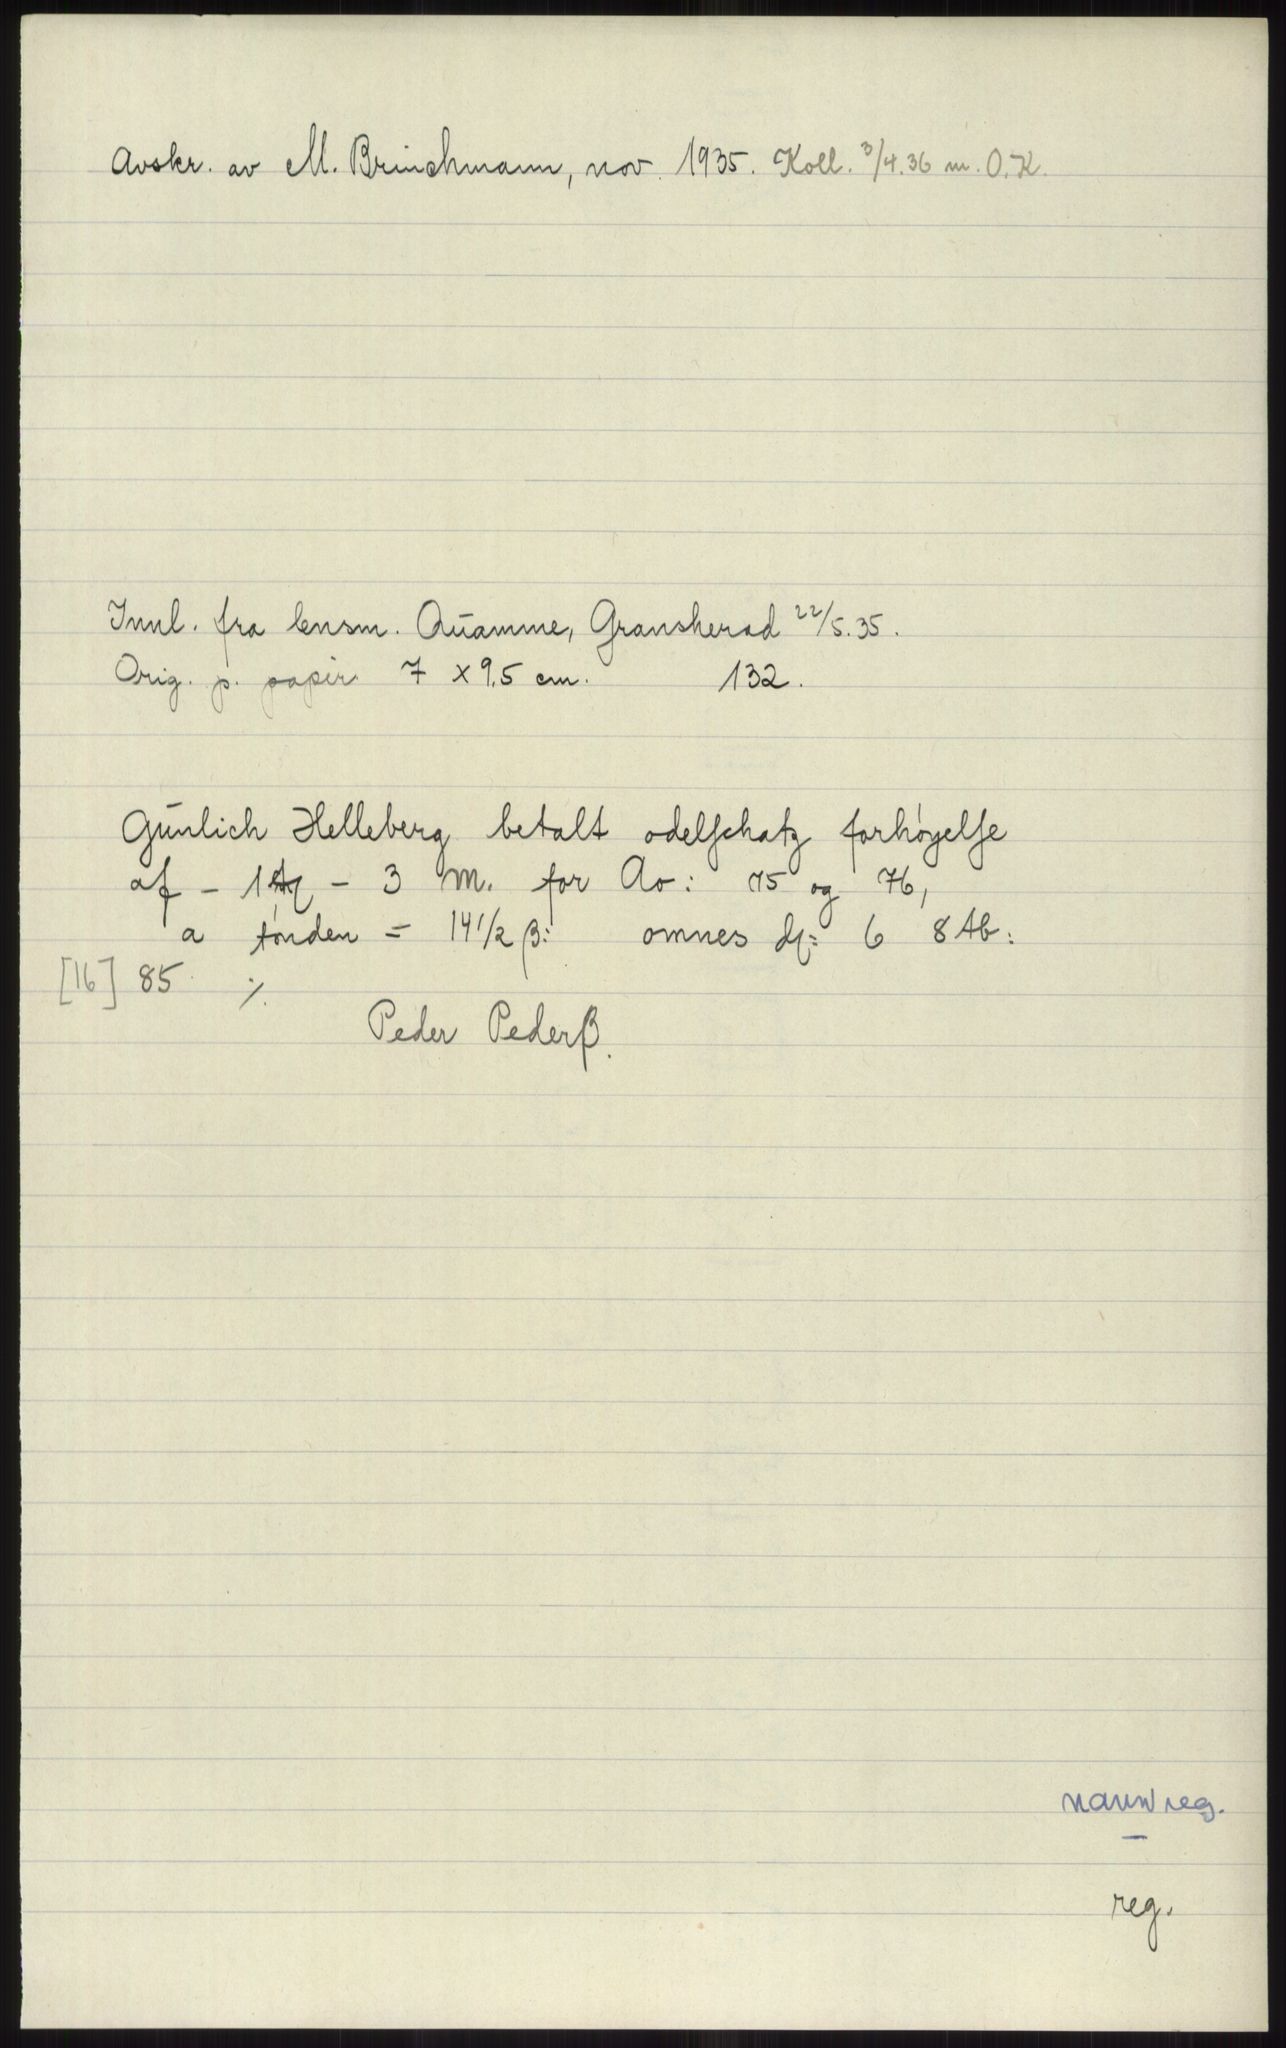 Avskr. av M. Brinchmann, nov. 1935. Koll. 3/4.36 m. O.K.
Innl. fra lensm. Quamme, Gransherad 22/5.35.
Orig. p. papir 7 x 9,5 cm. 132.
Gunlich Helleberg betalt odelschatz forhøyelse
af - 1 - 3 m. for Ao: 75 og 76,
a tønden = 14 1/2 β: omnes 6 8 Ab:
[16] 85 ./.
Peder Pederß.
navnreg.
reg.